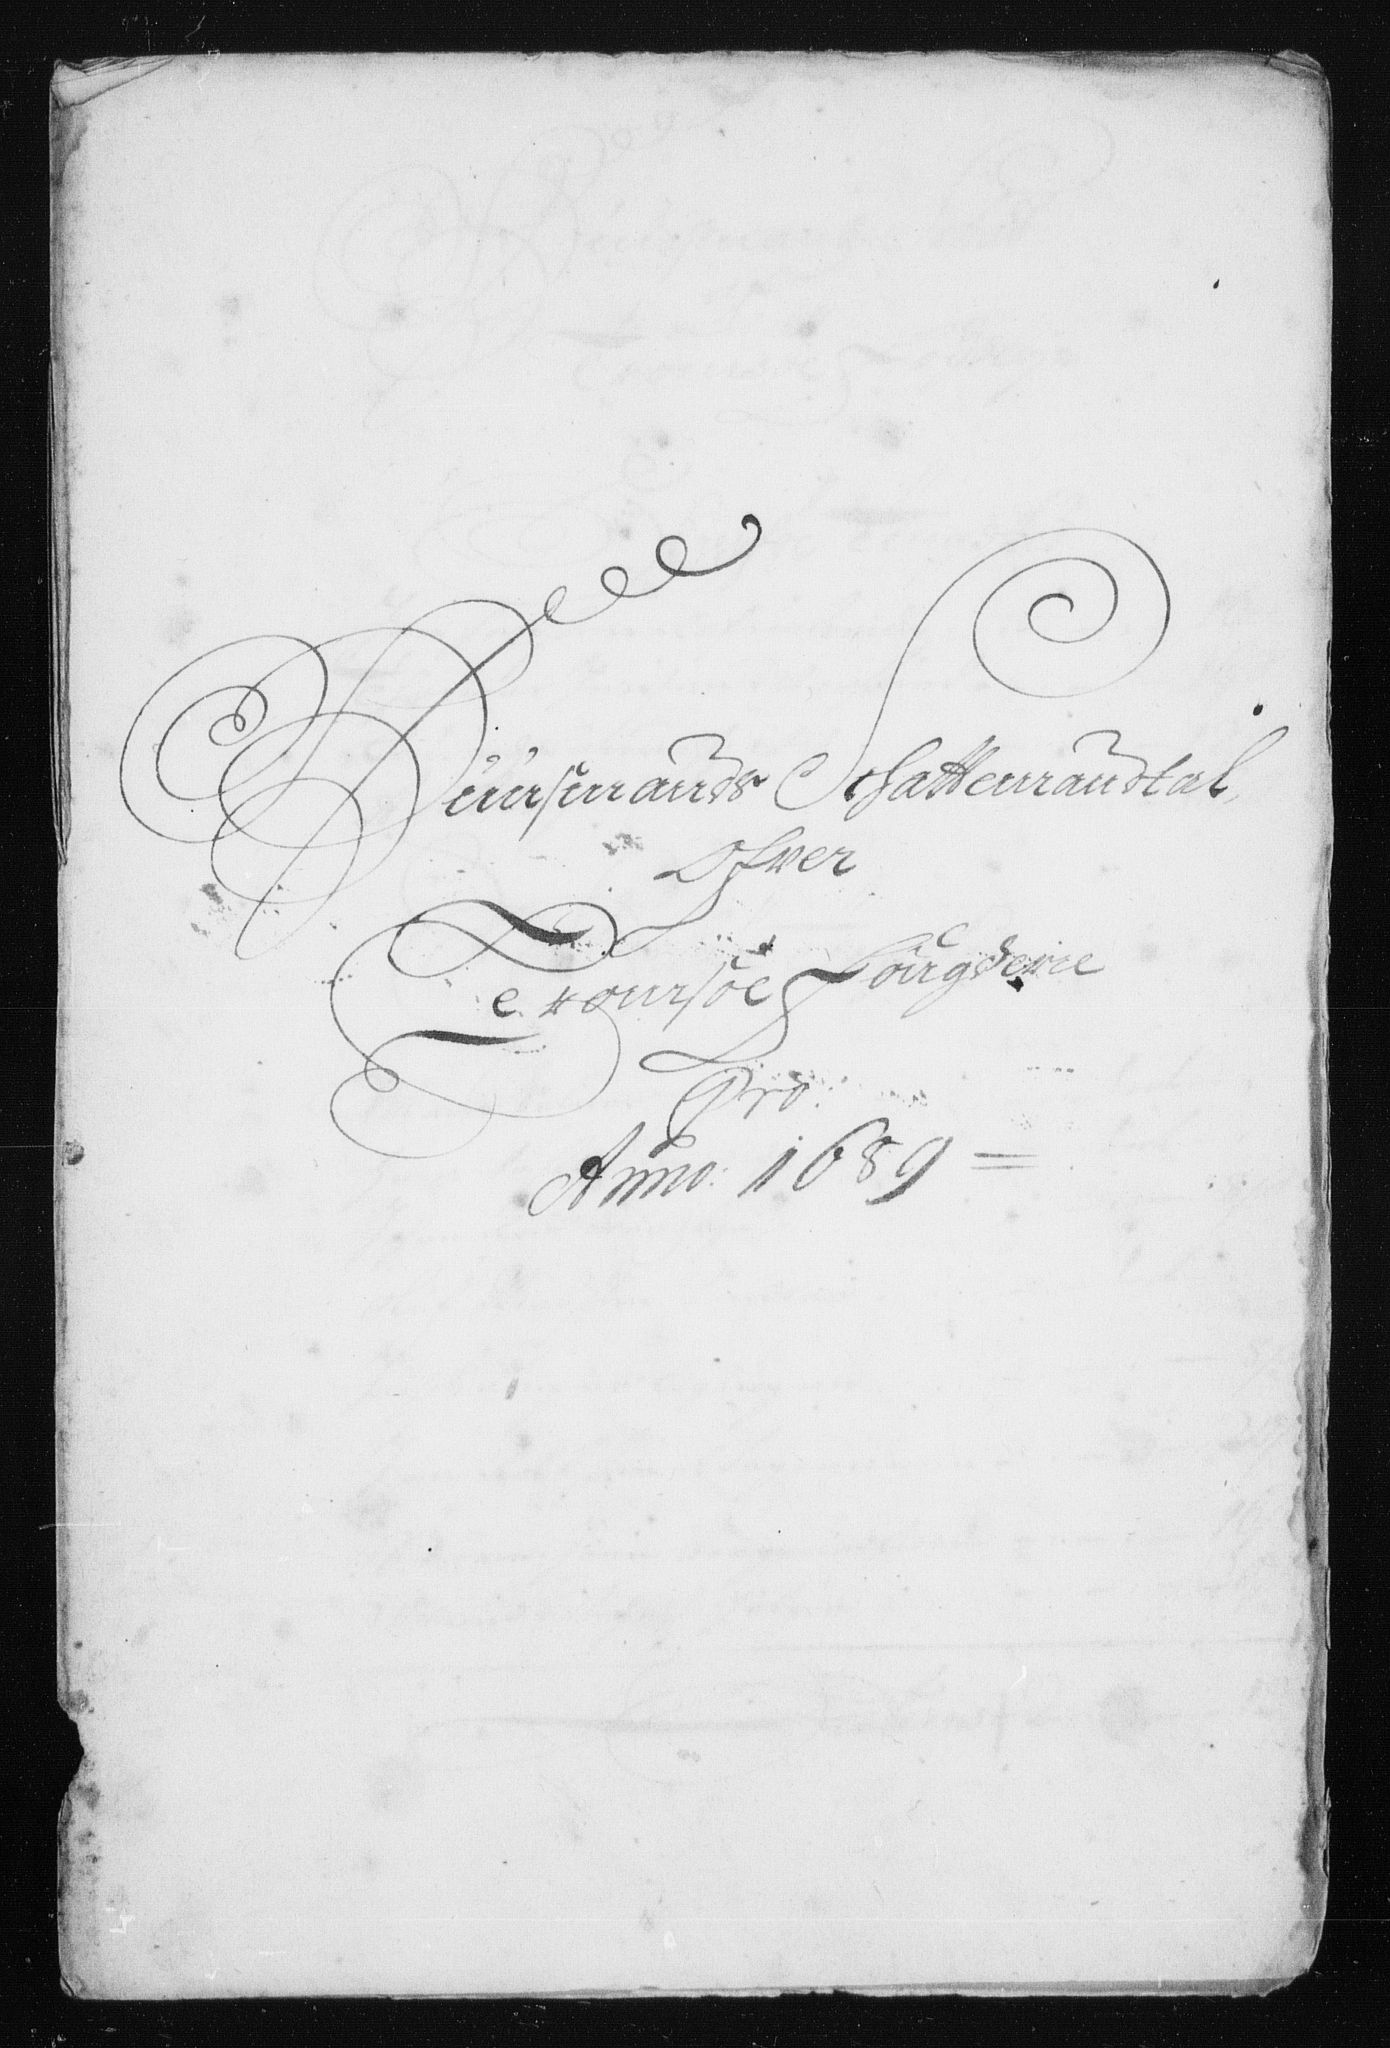 Huusmands Schattemandtal,
Ofver
Tromsøe Fougderie
Pro:
Anno: 1689 =